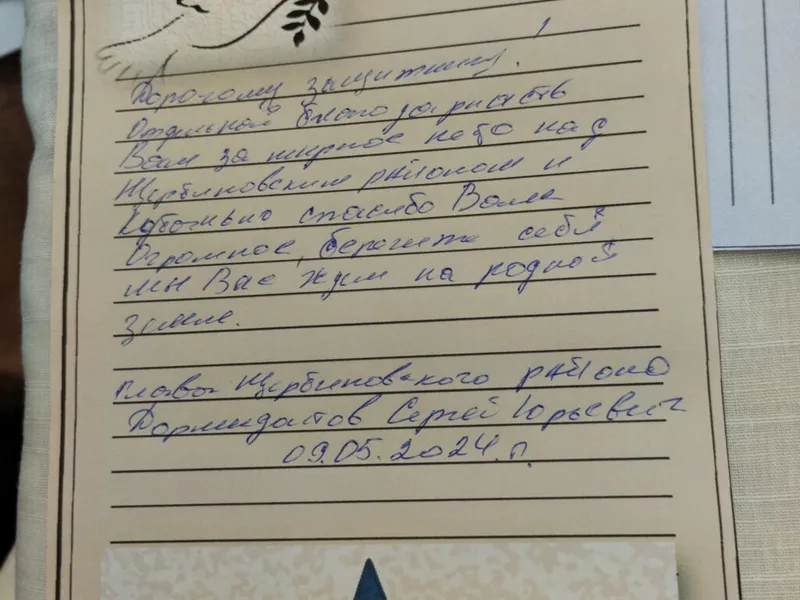 Дорогому защитнику!
Отдельная благодарность
Вам за мирное небо над
Щербиновским районом и
Кубанью спасибо Вам
Огромное, берегите себя,
мы Вас ждем на родной
земле.
Глава Щербиновского района
Дормидонтов Сергей Юрьевич
09.05.2024 г.